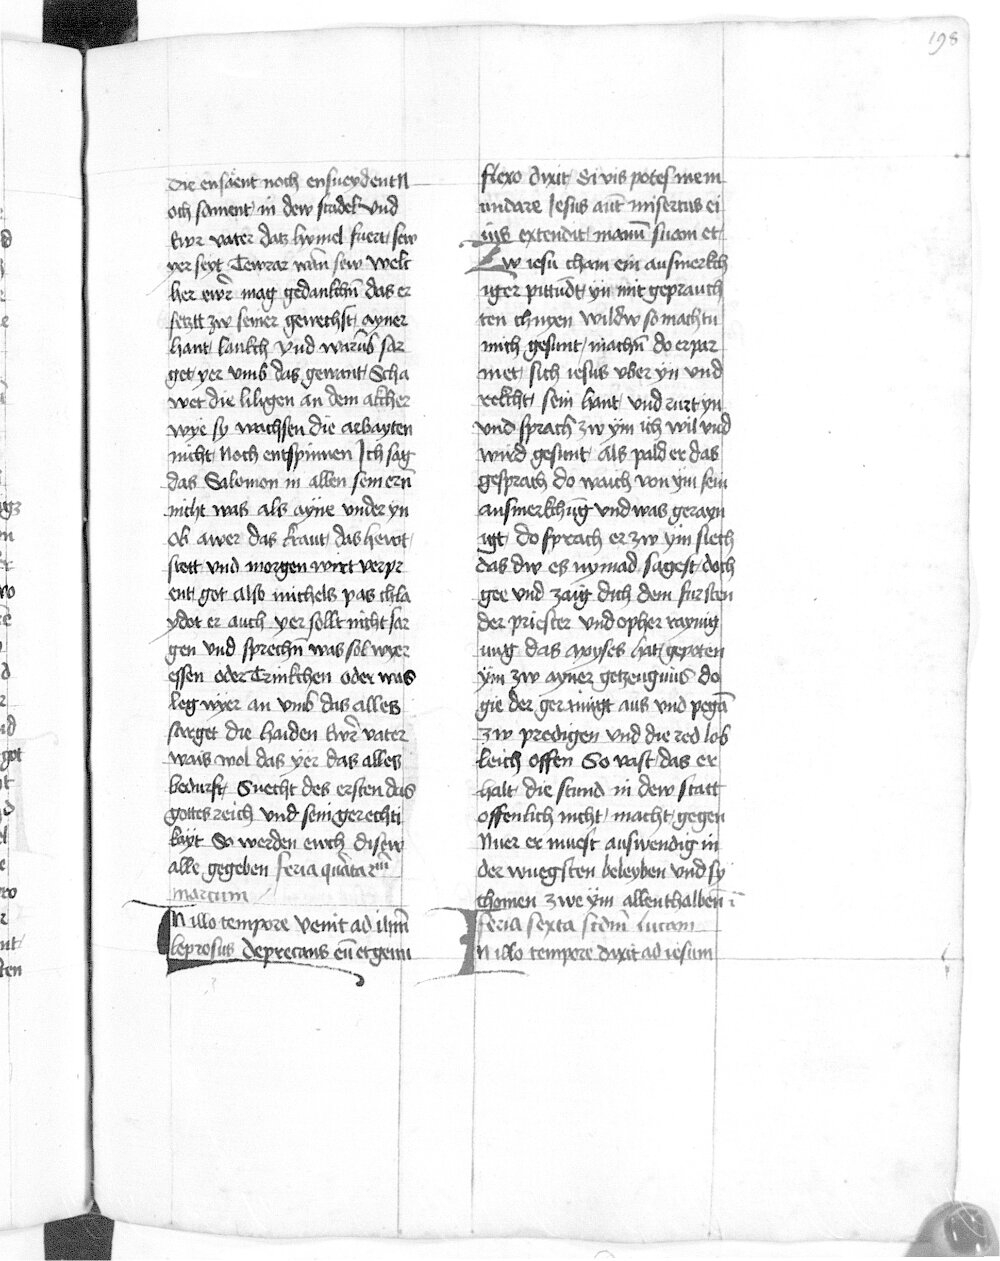 198
die ensäent noch ensneydent N
och sament in dew städel Und
Ewr vater datz hymel fuert sew
yer seyt Tewrar wān sew welt
her ewr̄ mag gedankchn̄ das er
setzt zw seiner gewechst ayner
hant lankch Und warūb sar
get yer umb das gewant Scha
wet die liligen an dem akcher
wye sy wachsen die arbayten
nicht Noch entspinnen Ich sag
das Salomon in allen sein ern̄
nicht was als ayne under yn
Ob awer das kraut das hewt
stett und morgen wirt verpr
ent got also michels pas chla
ydet er auch yer sollt nicht sar
gen und sprechn̄ was sol wyer
essen oder Trinkchen oder was
leg wyer an umb das alles
sarget die haiden Ewr̄ vater
wais wol das yer das alles
bedurft Suecht des ersten das
gottes reich und sein gerechti
kayt So werden ewch disew
alle gegeben feria quarta rm̄
marcum
In illo tempore Venit ad ihm̄
leprosus deprecans eū et genu
flexo dixit Si vis potes me m
undare Jesus aut̄ misertus ei
ius extendit manū suam et
Zw iesu cham ein ausmerkch
iger pittūdt yn mit geprauch
ten chnyen wildw so machtu
mich gesunt machn̄ do erpar
met sich iesus uber yn und
rekcht sein hant und rurt yn
und sprach zw ym ich wil und
wird gesunt als pald er das
gesprach do waich von ym sein
ausmerkchūg und was gerayn
igt do sprach er zw ym siech
das dw es nymād sagest doch
gee und zaig dich dem fursten
der priester und opher raynig
ung das Moyses hat gepoten
ym zw ayner getzeugnus do
gie der gerainigt aus und pegā
zw predigen und die red lob
leich offen So vast das er
halt die stund in dew statt
offenlich nicht macht gegen
Nuer er muest auswendig in
der wuegsten beleyben und sy
chomen zwe ym allenthalben
feria sexta scdm̄ lucam
In illo tempore dixit ad iesum